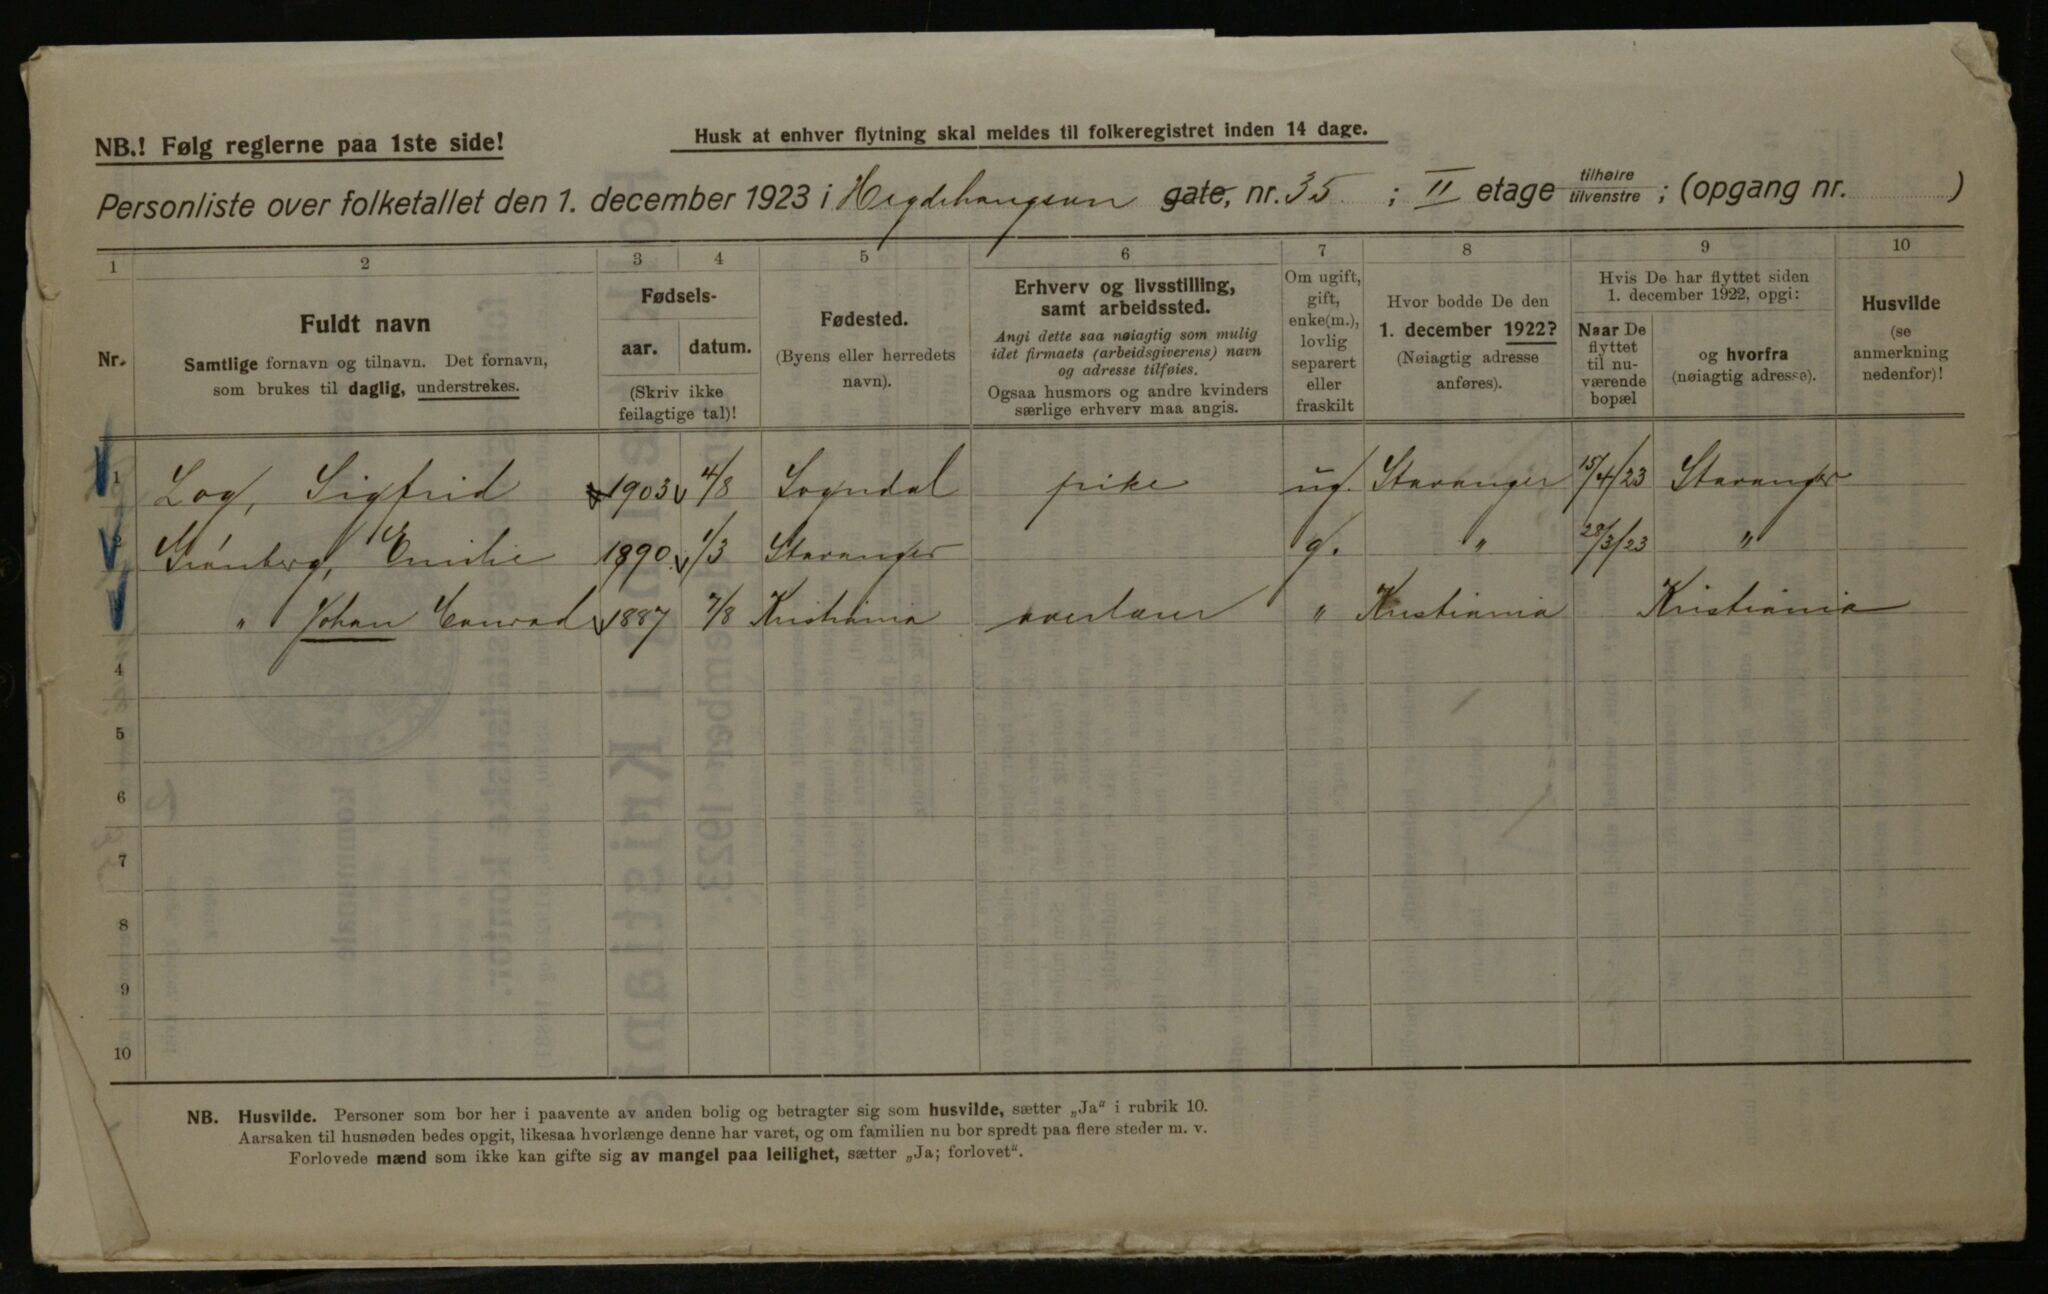 NB.! Følg reglerne paa 1ste side!
Husk at enhver flytning skal meldes til folkeregistret inden 14 dage.
Personliste over folketallet den 1. december 1923 i Hegdehaugsvn gate, nr. 35 ; II etage tilhøire tilvenstre ; (opgang nr. )
1 2 3 4 5 6 7 8 9 10
Nr.
Fuldt navn
Samtlige fornavn og tilnavn. Det fornavn,
som brukes til daglig, understrekes.
Fødsels-
aar. datum.
(Skriv ikke
feilagtige tal)!
Fødested.
(Byens eller herredets
navn).
Erhverv og livsstilling,
samt arbeidssted.
Angi dette saa nøiagtig som mulig
idet firmaets (arbeidsgiverens) navn
og adresse tilføies.
Ogsaa husmors og andre kvinders
særlige erhverv maa angis.
Om ugift,
gift,
enke(m.),
lovlig
separert
eller
fraskilt
Hvor bodde De den
1. december 1922?
(Nøiagtig adresse
anføres).
Hvis De har flyttet siden
1. december 1922, opgi:
Naar De
flyttet
til nu-
værende
bopæl
og hvorfra
(nøiagtig adresse).
Husvilde
(se
anmerkning
nedenfor)!
1 Log, Sigfrid 1903 4/8 Sogndal pike ug. Stavanger 15/4/23 Stavanger
2 Grønberg, Emilie 1890 1/3 Stavanger g. " 28/3/23 "
" Johan Conrad 1887 7/8 Kristiania overlærer " Kristiania Kristiania
4
5
6
7
8
9
10
NB. Husvilde. Personer som bor her i paavente av anden bolig og betragter sig som husvilde, sætter „Ja“ i rubrik 10.
Aarsaken til husnøden bedes opgit, likesaa hvorlænge denne har varet, og om familien nu bor spredt paa flere steder m. v.
Forlovede mænd som ikke kan gifte sig av mangel paa leilighet, sætter „Ja; forlovet“.